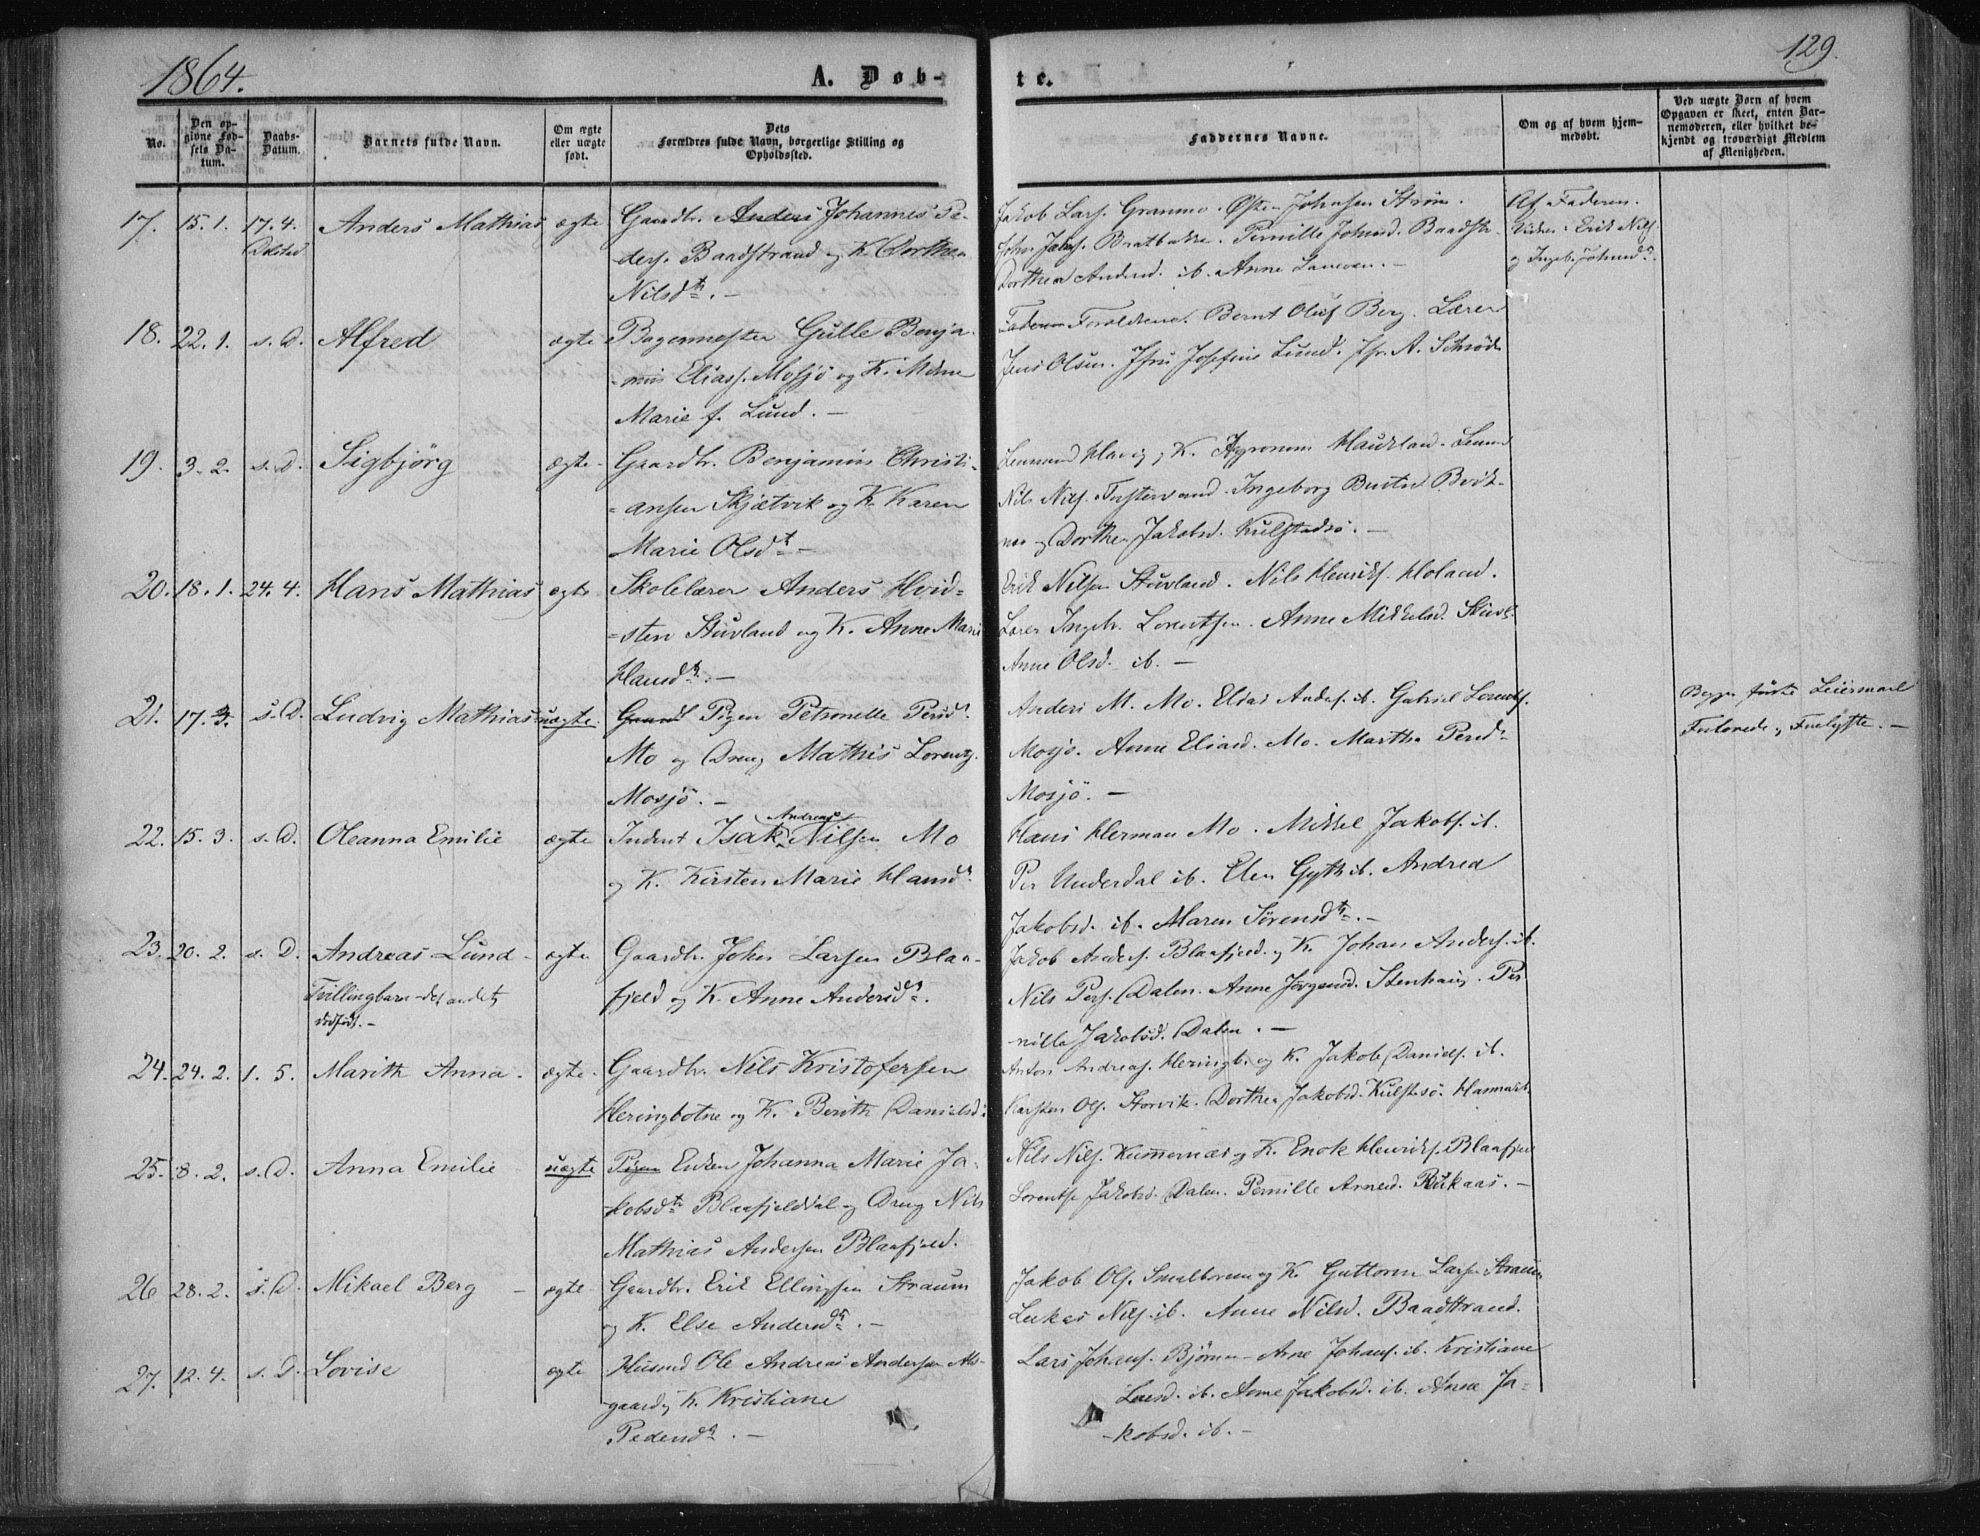 1864.
A. Døb-
te.
129.
No.
Den opgivne Fødsels Datum.
Daabs-Datum.
Barnets fulde Navn.
Om ægte eller uægte født.
Dets Forældres fulde Navn, borgerlige Stilling og Opholdssted.
Faddernes Navne.
Om og af hvem hjemmedøbt.
Ved uægte Børn af hvem Opgaven er skeet, enten Barnemoderen, eller hvilket bekjendt og troværdigt Medlem af Menigheden.
17. 15. 1. 17. 4. Anders Mathias ægte Gaardbr. Anders Johannes Pe-
Dolstad
ders. Baadstrand og K. Dorthea
Nilsdtr. -
Jakob Lars. Granmo. Østen Johansen Strøm.
Bratbakke. Pernille Johansd. Baadstr.
Dorthea Andersd. ib. Anne
Af Faderen.
Vidner: Erik Nils.
og Ingeb. Johansd.
18. 22. 1. s. D. Alfred ægte Bagermester Gulle Benja-
min Eliass. Mosjö og K.
Marie f. Lund. -
Forældrene. Bernt Oluf Berg. Lærer
Jens Olsen. Jfru Josefine Lund. Jfr. A. Schrød
19. 3. 2. s. D. Sigbjörg ægte. Gaardbr. Benjamin Christi-
=ansen Skjætvik og K. Karen
Marie Olsdtr. -
K. Haukland.
Nils Nils. Ingeborg
og Dorthea Jakobsd. Kulstadsö. -
20. 18. 1. 24. 4. Hans Mathias ægte Skolelærer Anders Hvid-
=sten Stuvland og K. Anne Marie
Hansdtr. -
Erik Nilsen Stuvland. Nils Henriks. Holand.
Lærer Ingebr. Lorentsen. Anne Mikkelsd. Stuvl.
Anne Olsd. ib. -
21. 17. s. D. Ludvig Mathias uægte. Pigen Petronelle Persd.
Mo og Dreng Mathis Lorents.
Mosjö. -
Anders M. Mo. Elias Anders. ib. Gabriel Lorents.
Mosjö. Anne Eliasd. Mo. Martha Persdtr.
Mosjö. -
Begge første Leiermaal
Forlovede, -
22. 15. 3. s. D. Oleanna Emilie ægte Inderst Isak Andreas Nilsen Mo
og K. Kirsten Marie Hansdtr.
Hans Herman Mo. Mikkel Jakobs. ib.
Per Underdal ib. Elen Gyth ib. Andrea
Jakobsd. ib. Maren Sörensdtr. -
23. 20. 2. s. D. Andreas Lund - ægte Gaardbr. Johan Larsen Blaa-
Tvillingbarn - det andet
dødfødt. -
fjeld og K. Anne Andersdtr.
Jakob Anders. Blaafjeld og K. Johan Anders. ib.
Nils Pers. Dalen. Anne Jörgensd. Stenhaug. Per
nille Jakobsd. Dalen. -
24. 24. 2. 1. 5. Marith Anna. ægte. Gaardbr. Nils Kristofersen
Heringbotne og K. Berith Danielsd.
Anton Andreas. Heringb. og K. Jakob Daniels. ib.
Karsten Ols. Storvik. Dorthea Jakobsd. Kulstsö.
25. 8. 2. s. D. Anna Emilie uægte Pigen Enken Johanna Marie Ja-
kobsdtr. Blaafjelddal og Dreng Nils
Mathias Andersen Blaafjeld.
Nils Nils. Kummernæs og K. Enok Henriks. Blaafjeld
Lorents Jakobs. Dalen. Pernille Arnesd. -
26 28. 2. s. D. Mikael Berg - ægte Gaardbr. Erik Ellingsen Straum
og K. Else Andersdtr. -
Jakob Ols. Smalborem og K. Guttorm Larsen Straum
Lukas Nils. ib. Anne Nilsd. Baadstrand.
27. 12. 4. s. D. Lovise ægte Husmd Ole Andreas Andersen Als-
gaard og K. Kristiane
Pedersdtr. -
Lars Johans. Björnn - Arne Johans. ib. Kristiane
Larsd. ib. Anne Jakobsd. ib. Anna Ja-
-kobsd. ib. -